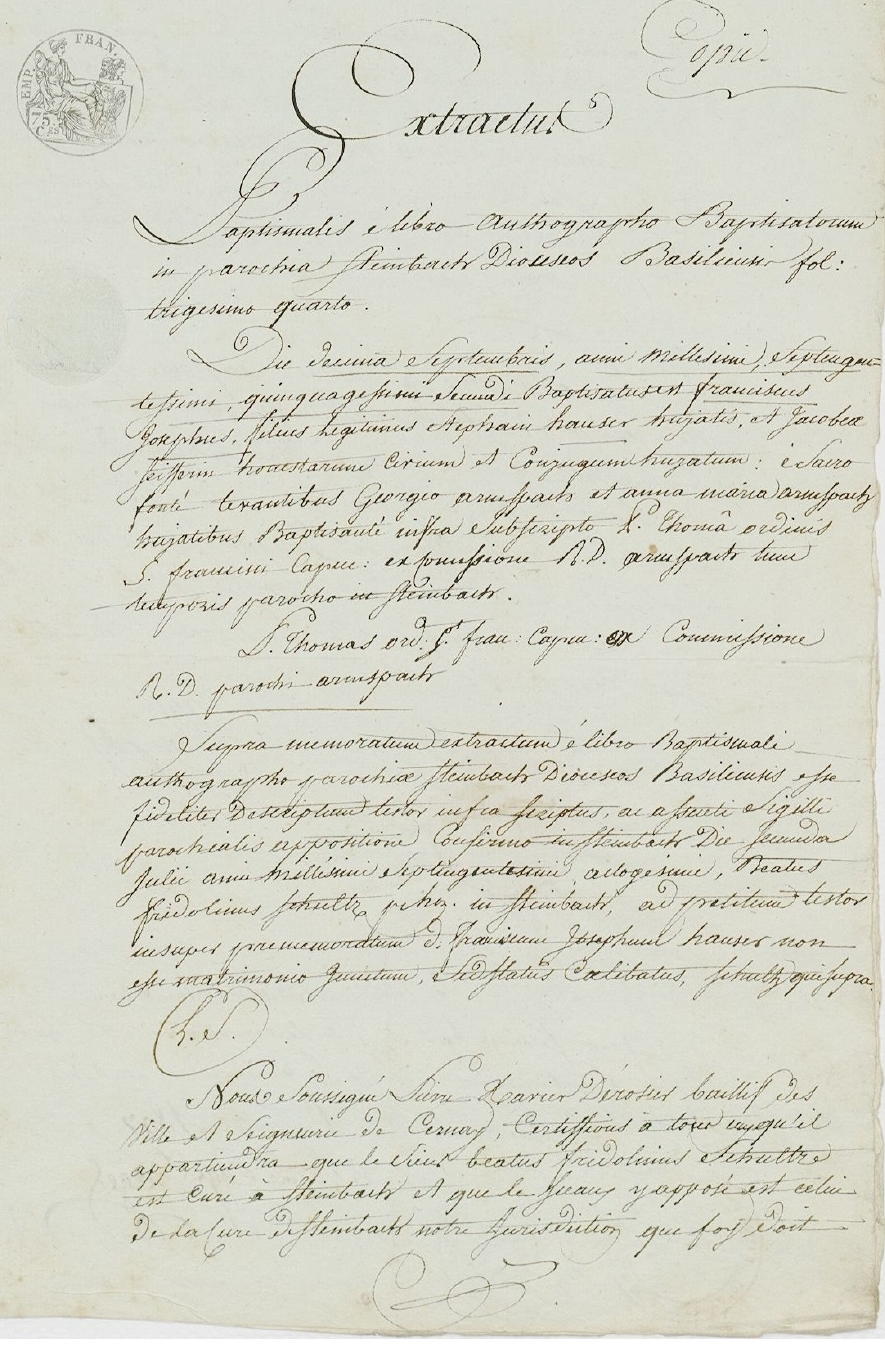 EMP. FRAN.
75
Ces
Copie.
Extractus
Baptismalis è libro authographo Baptisatorum
in parochia Steinbach Dioeseos Basiliensis fol:
trigesimo quarto.
Die decima Septembris, anni Millesimi, Septengen=
tessimi, quinquagessimi Secundi Baptisatus est franciscus
Josephus, filius legitimus Stephani hauser hujatis, et Jacobeæ
honestarum Civium et Conjugum hujatum: è Sacro
fonte levantibus Georgio arnspach et anna maria arnspach
hujatibus Baptisante infra Subscripto P. Thomâ ordinis
S. francisci Capuc: ex Comissione R.D. arnspach tunc
temporis parocho in Steinbach.
P. Thomas ord. St. fran: Capuc: ex Commissione
R.D. parochi arnspach
Supra memoratum extractum è libro Baptismali
authographo parochiæ Steinbach Dioeseos Basiliensis esse
fideliter Descriptum testor infra scriptus, ac assueti Sigilli
parochialis appositione Confirmo in Steinbach Die Secunda
Julii anni Millesimi Septengentesimi, actogésimi, Beatus
fridolinus Schultz in Steinbach, ad petitum testor
insuper prememoratum d. franciscum Josephum hauser non
esse matrimonio Junctum, Sed status Cælibatus, Schultz qui supra.
L.S.
Nous Soussigné Pierre Xavier Dérosier baillif des
Ville et Seigneurie de Cernay, Certiffions à tous ceux qu'il
appartiendra que le Sieur beatus fridolinus Schultre
est Curé à Steinbach et que le Sceau y apposé est celui
de la Cure de Steinbach notre Jurisdiction que foy doit